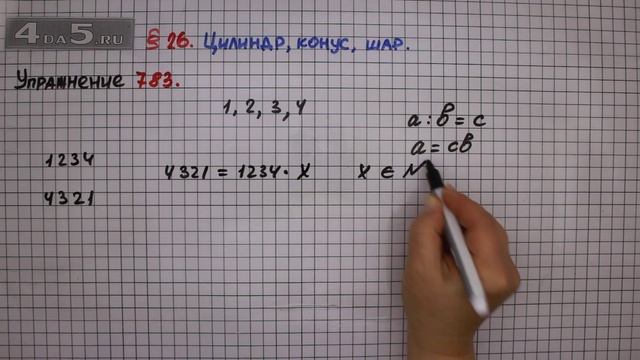 4DA5.RU
§ 26. Цилиндр, конус, шар.
Упражнение 783.
1, 2, 3, 4
a : b = c
a = cb
1234
4321 = 1234 · x
x ∈ N
4321